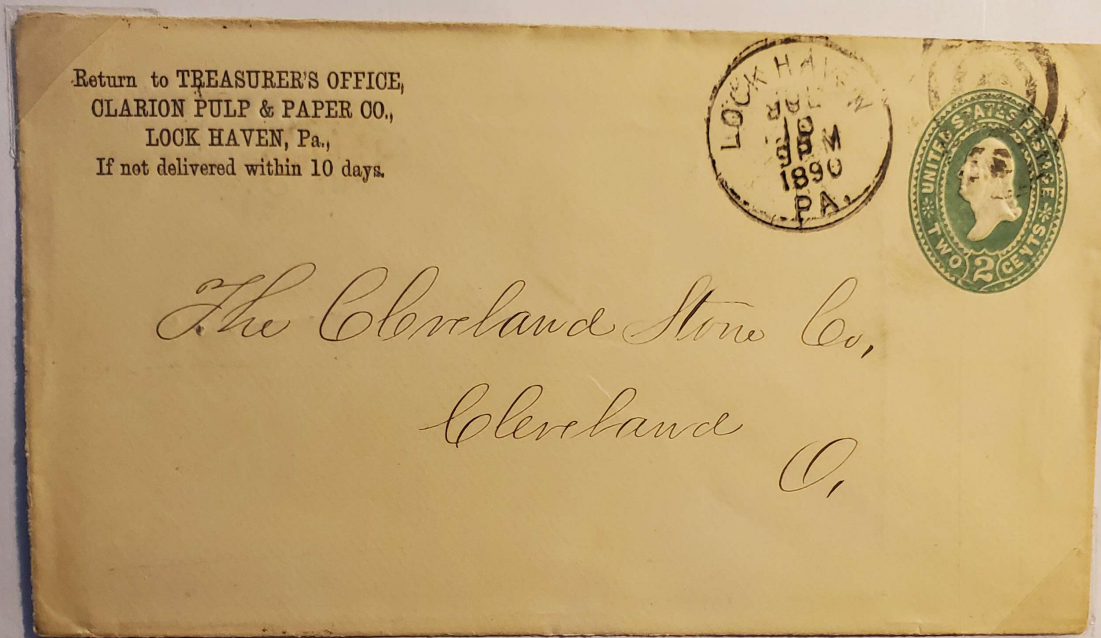 Return to TREASURER'S OFFICE,
CLARION PULP & PAPER CO.,
LOCK HAVEN, Pa.,
If not delivered within 10 days.
LOCK HAVEN
JUL
10
PM
1890
PA.
UNITED STATES POSTAGE
TWO 2 CENTS
The Cleveland Stone Co,
Cleveland
O,